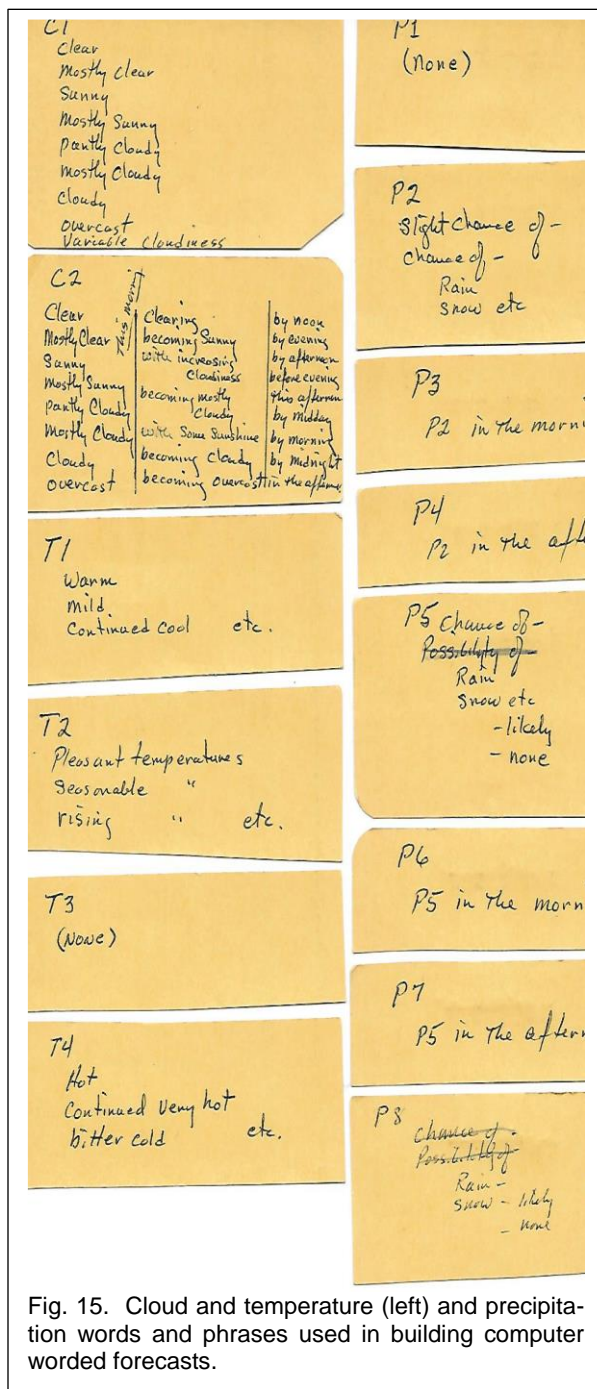 C1
Clear
Mostly Clear
Sunny
Mostly Sunny
partly Cloudy
mostly Cloudy
Cloudy
overcast
Variable Cloudiness
C2
This morn
Clear
Mostly Clear
Sunny
Mostly Sunny
partly Cloudy
Mostly Cloudy
Cloudy
overcast
Clearing
becoming Sunny
with increasing
Cloudiness
becoming mostly
Cloudy
with Some Sunshine
becoming Cloudy
becoming overcast
by noon
by evening
by afternoon
before evening
this afternoon
by midday
by morning
by midnight
in the afternoon
T1
Warm
mild
Continued cool etc.
T2
Pleasant temperatures
Seasonable "
rising " etc.
T3
(None)
T4
Hot
Continued very hot
bitter cold etc.
P1
(None)
P2
Slight Chance of -
Chance of -
Rain
Snow etc
P3
P2 in the morni
P4
P2 in the afte
P5 Chance of -
Possibility of -
Rain
Snow etc
- likely
- none
P6
P5 in the morn
P7
P5 in the aftern
P8
Chance of.
Possibility of
Rain -
Snow - likely
- none
Fig. 15. Cloud and temperature (left) and precipita-
tion words and phrases used in building computer
worded forecasts.